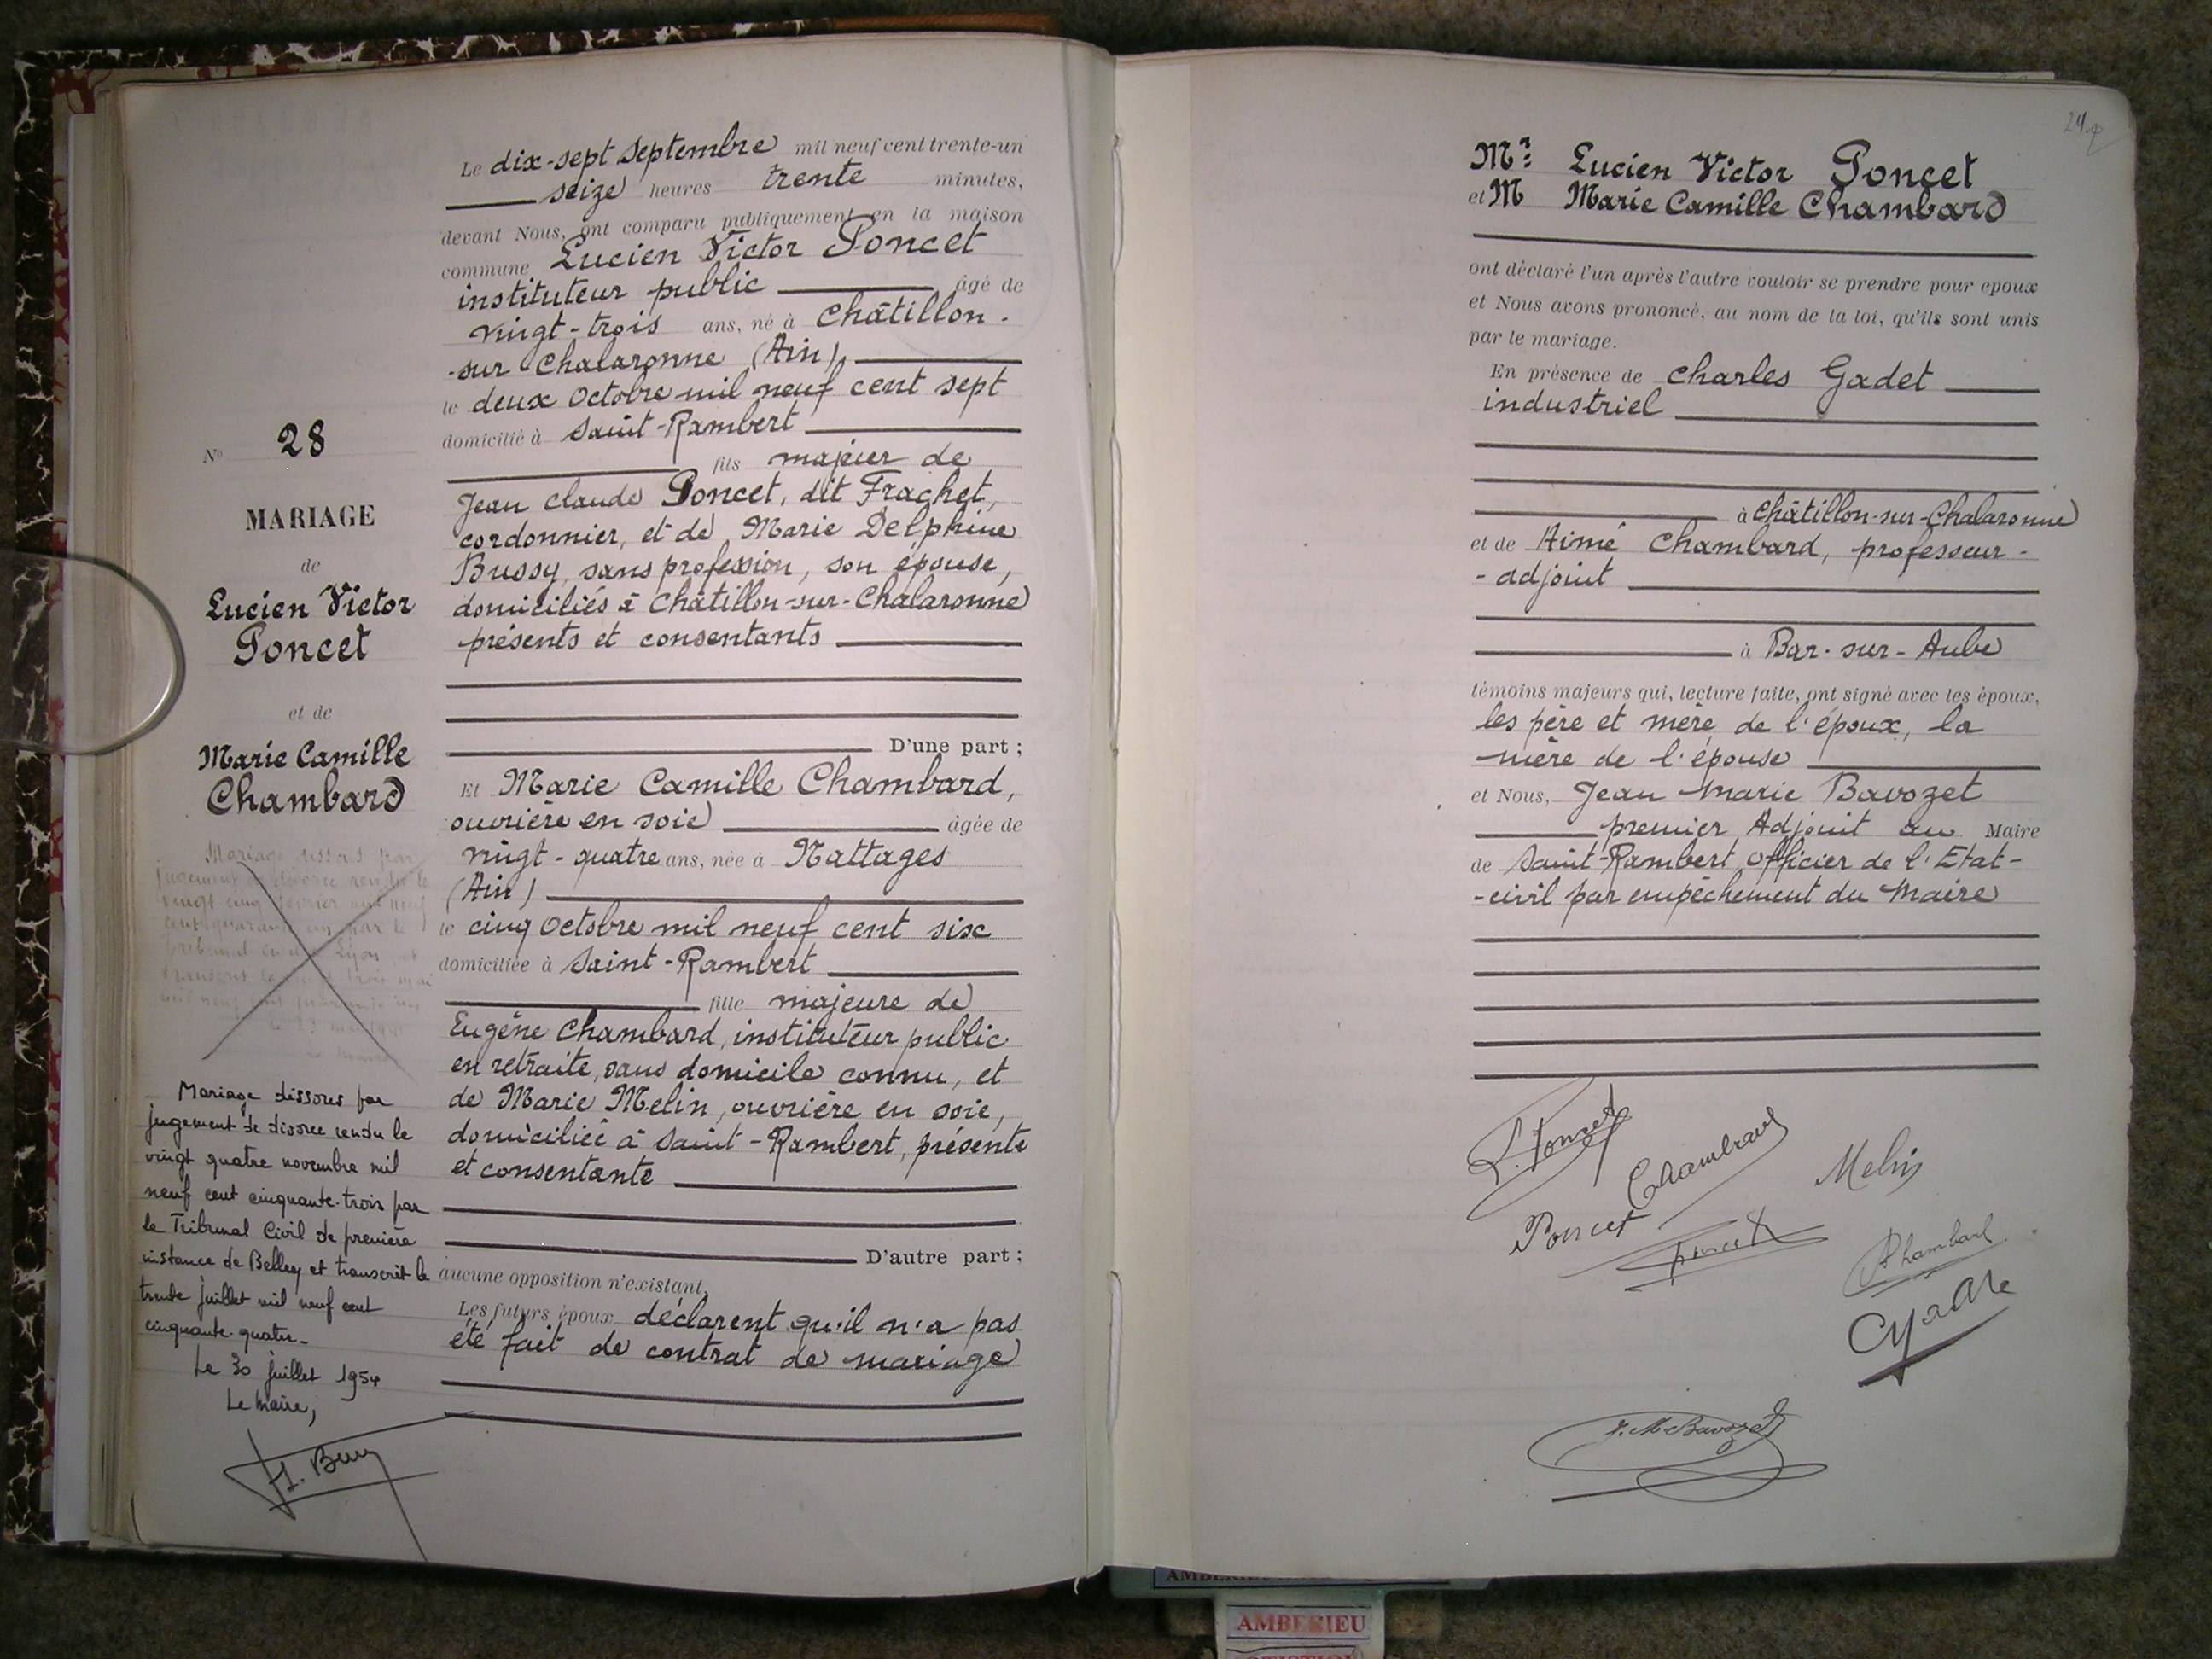 Le dix-sept Septembre mil neuf cent trente-un
seize heures trente minutes,
devant Nous, ont comparu publiquement en la maison
commune Lucien Victor Poncet
instituteur public âgé de
vingt-trois ans, né à Châtillon-
-sur Chalaronne (Ain),
le deux Octobre mil neuf cent sept
domicilié à Saint-Rambert
fils majeur de
Jean Claude Poncet, dit Frachet,
cordonnier, et de Marie Delphine
Bussy, sans profession, son épouse,
domiciliés à Châtillon-sur-Chalaronne
présents et consentants
D'une part ;
Et Marie Camille Chambard,
ouvrière en soie âgée de
vingt-quatre ans, née à Nattages
(Ain)
le cinq Octobre mil neuf cent six
domiciliée à Saint-Rambert
fille majeure de
Eugène Chambard, instituteur public
en retraite, sans domicile connu, et
de Marie Melin, ouvrière en soie,
domiciliée à Saint-Rambert, présente
et consentante
D'autre part ;
aucune opposition n'existant,
Les futurs époux déclarent qu'il n'a pas
été fait de contrat de mariage
No 28
MARIAGE
de
Lucien Victor
Poncet
et de
Marie Camille
Chambard
Mariage dissous par
jugement de divorce rendu le
vingt cinq février mil neuf
cent quarante un par le
tribunal civil de Lyon, et
transcrit le vingt trois mai
mil neuf cent quarante un
Mariage dissous par
jugement de divorce rendu le
vingt quatre novembre mil
neuf cent cinquante-trois par
le Tribunal Civil de première
instance de Belley et transcrit le
trente juillet mil neuf cent
cinquante-quatre-
Le 30 juillet 1954
Le Maire,
24
Mr Lucien Victor Poncet
et M Marie Camille Chambard
ont déclaré l'un après l'autre vouloir se prendre pour époux
et Nous avons prononcé, au nom de la loi, qu'ils sont unis
par le mariage.
En présence de Charles Gadet
industriel
à Châtillon-sur-Chalaronne
et de Aimé Chambard, professeur-
-adjoint
à Bar-sur-Aube
témoins majeurs qui, lecture faite, ont signé avec les époux,
les père et mère de l'époux, la
mère de l'épouse
et Nous, Jean Marie Bavozet
premier Adjoint au Maire
de Saint-Rambert, Officier de l'Etat-
-civil par empêchement du Maire
L. Poncet
Chambard
Melin
Poncet
Poncet
A Chambard
J. M. Bavozet
AMBERIEU